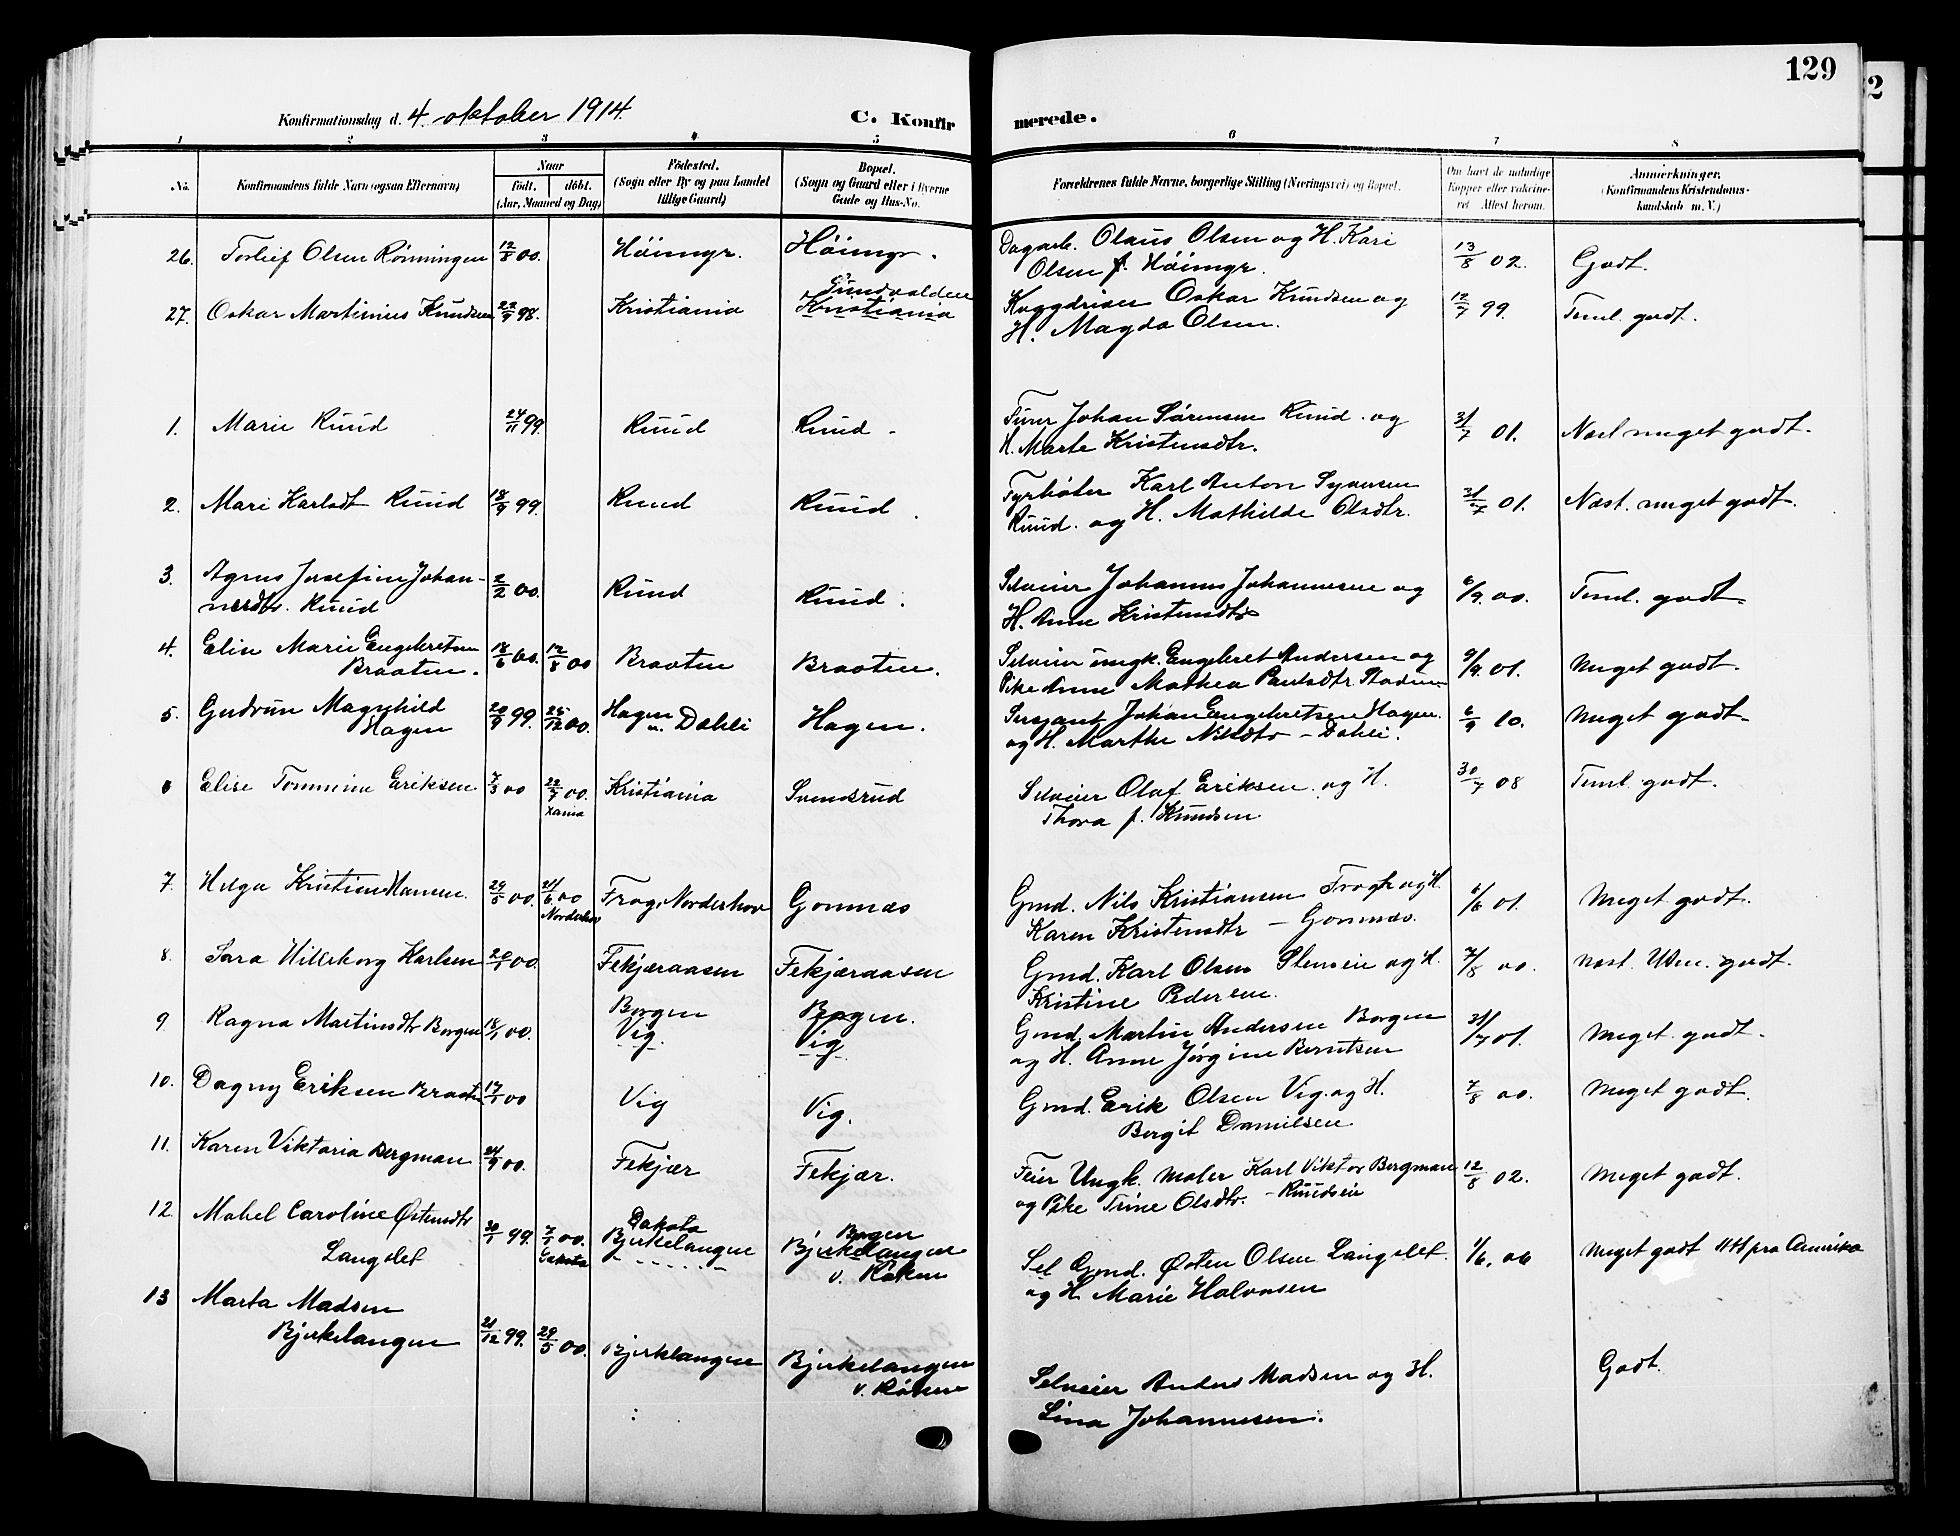 129
Konfirmationsdag d. 4. oktober 1914.
C. Konfir
merede.
1 2 3 4 5 6 7 8
No.
Konfirmandens fulde Navn (ogsaa Efternavn)
Naar
født. døbt.
(Aar, Maaned og Dag)
Fødested.
(Sogn eller By og paa Landet
tillige Gaard)
Bopæl.
(Sogn og Gaard eller i Byerne
Gade og Hus-No.
Forældrenes fulde Navne, borgerlige Stilling (Næringsvei) og Bopæl.
Om havt de naturlige
Kopper eller vakcine-
ret Attest herom.
Anmærkninger.
(Konfirmandens Kristendoms-
kundskab m. V.)
26. Torleif Olsen Rønningen 12/8 00. Høimyr. Høimyr. Dagarb. Olaus Olsen og H. Kari
Olsen f. Høimyr. 13/8 02. Godt.
27. Oskar Martinius Knudsen 22/9 98. Kristiania Sundvolden
Kristiania Oskar Knudsen og
H. Magda Olsen. 12/7 99. Teml. godt.
1. Marie Ruud 24/11 99. Ruud Ruud. Johan Sørensen Ruud. og
H. Marte Kristensdtr. 31/7 01. Næst meget godt.
2. Mari Karlsdt Ruud 18/9 99. Ruud Ruud. Fyrbøter Karl Anton Syversen
Ruud. og H. Mathilde Olsdtr. 31/7 01. Næst. meget godt.
3. Agnes Josefine Johan-
nesdtr. Ruud 2/2 00. Ruud Ruud. Selveier Johannes Johannesen og
H. Anne Kristensdtr 6/9. 00. Teml. godt.
4. Elin Marie Engebretsen
Braaten. 18/6 00. 12/8 00 Braaten Braaten. Selveier ungk. Engebret Andersen og
Pike Anne Mathea Paulsdtr. 9/9. 01. Meget godt.
5. Gudrun Magnhild
Hagen 20/9 99. 25/12 00. Hagen
u. Dahli Hagen. Sersjant Johan Engebretsen Hagen.
og H. Marthe Nilsdtr - Dahli. 6/9 10. Meget godt.
6 Elise Tommine Eriksen 7/3 00 22/7 00.
Xania Kristiania Svendsrud Selveier Olaf Eriksen. og H.
Thora f. Knudsen 30/7 08 Teml. godt.
7. Helga Kristine Hansen. 29/5 00. 21/6 00
Norderhov Frog, Norderhov Gomnæs Gmd. Nils Kristiansen og H.
Karen Kristensdtr - Gomnæs. 6/6 01. Meget godt.
8. Sara Hilleborg Karlsen 20/1 00. Fekjæraasen Fekjæraasen Gmd. Karl Olsen Slenseie og H.
Kristine Pedersen. 7/8 00. Næst. godt.
9. Ragna Martinsdtr Borgen 18/1 00. Borgen
Vig. Borgen.
Vig Gmd. Martin Andersen Borgen
og H. Anne Jørgine Berntsen 31/7 01. Meget godt.
10. Dagny Eriksen Braaten 17/1 00 Vig Vig. Gmd. Erik Olsen Vig. og H.
Bergit Danielsen 7/8 00. Meget godt.
11. Karen Viktoria Bergman 24/9 00. Fekjær Fekjær. Feier Ungk. Maler Karl Viktor Bergman
og Pike Trine Olsdtr. - Ruudseie 12/8 02. Meget godt.
12. Mabel Caroline Østensdtr
Langslet 30/1 99. 7/1 00.
Dakota Dakota
Bjerkelangen Borgen
Bjerkelangen
v. Røken Sel Gmd. Østen Olsen Langslet.
og H. Marie Halvorsen 1/6. 06 Meget godt Utt fra Amerika
13 Marta Madsen
Bjerkelangen 21/12 99. 29/5 00. Bjerklangen Bjerkelangen
v. Røken Selveier Anders Madsen og H.
Lina Johannesen. Godt.